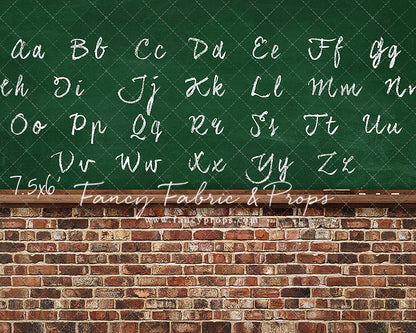 Aa Bb Cc Dd Ee Ff Gg
Hh Ii Jj Kk Ll Mm Nn
Oo Pp Qq Rr Ss Tt Uu
Vv Ww Xx Yy Zz
7.5x6'
Fancy Fabric & Props
www.fancyprops.com